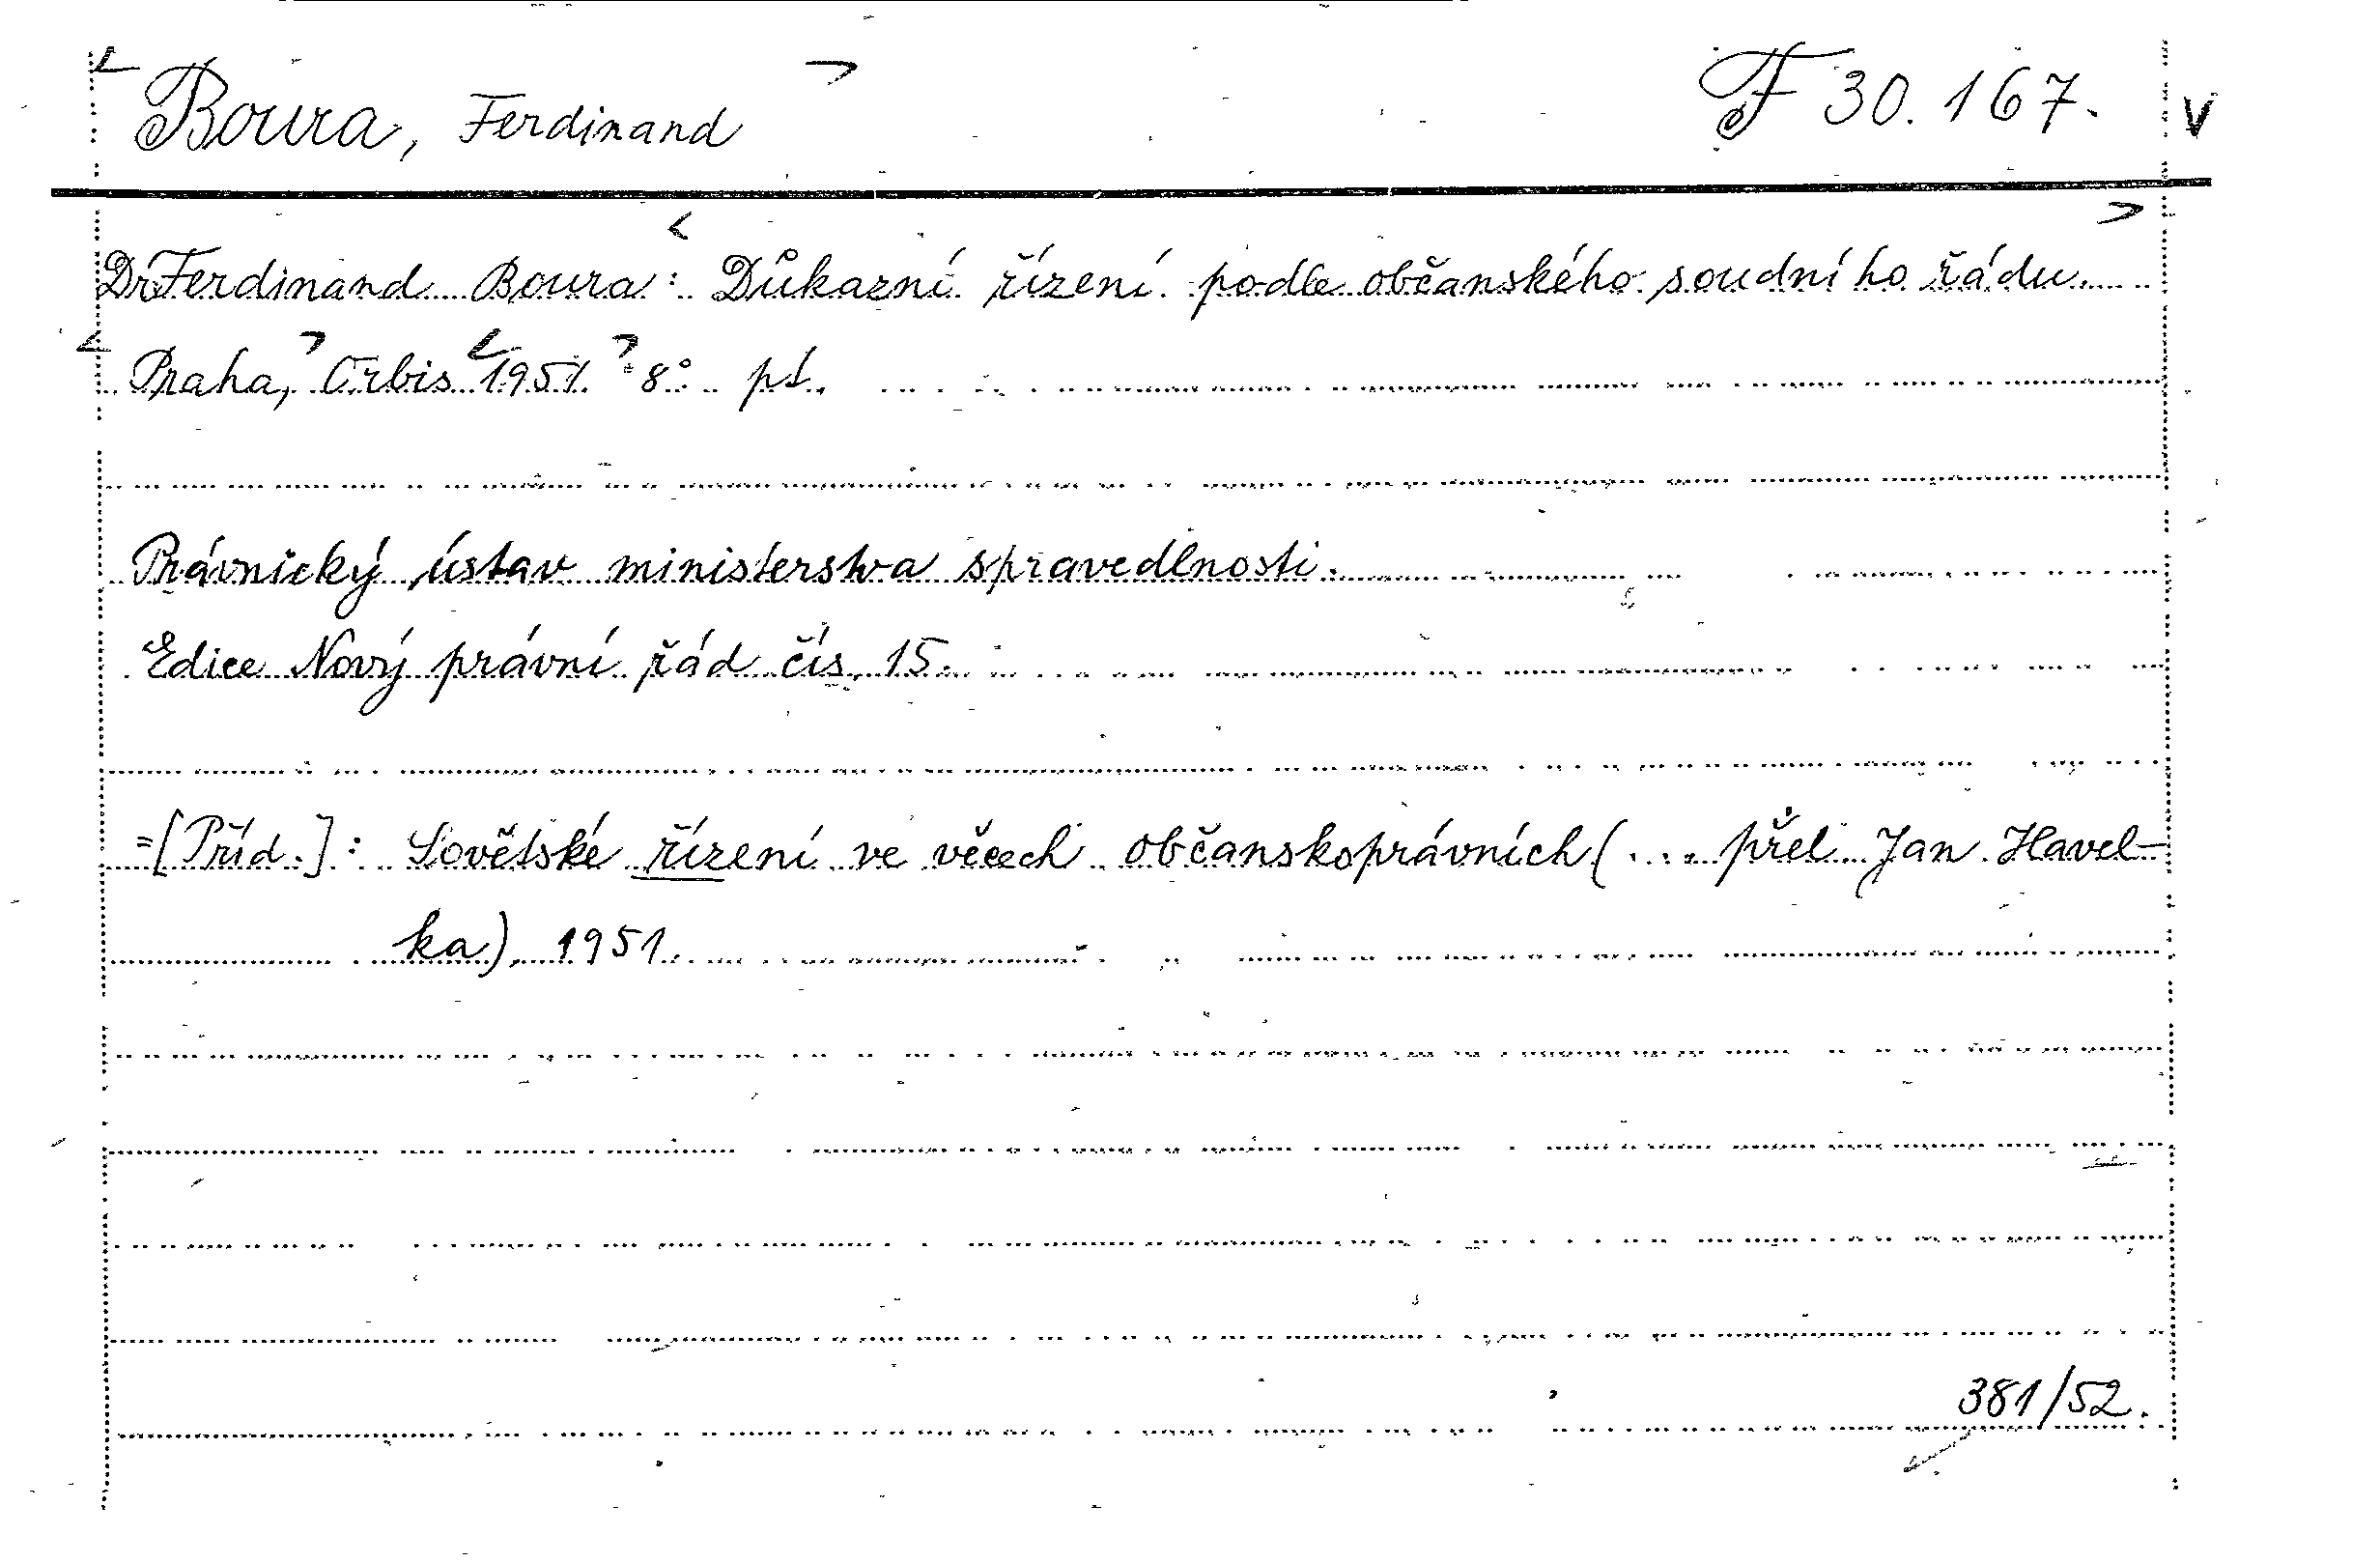 Boura, Ferdinand F 30.167. V
Dr Ferdinand Boura: Důkazní řízení podle občanského soudního řádu.
Praha, Orbis 1951. 8° pt.
Právnický ústav ministerstva spravedlnosti.
Edice Nový právní řád čís. 15.
=[Příd.]: Sovětské řízení ve věcech občanskoprávních (... přel. Jan Havel-
ka), 1951.
381/52.